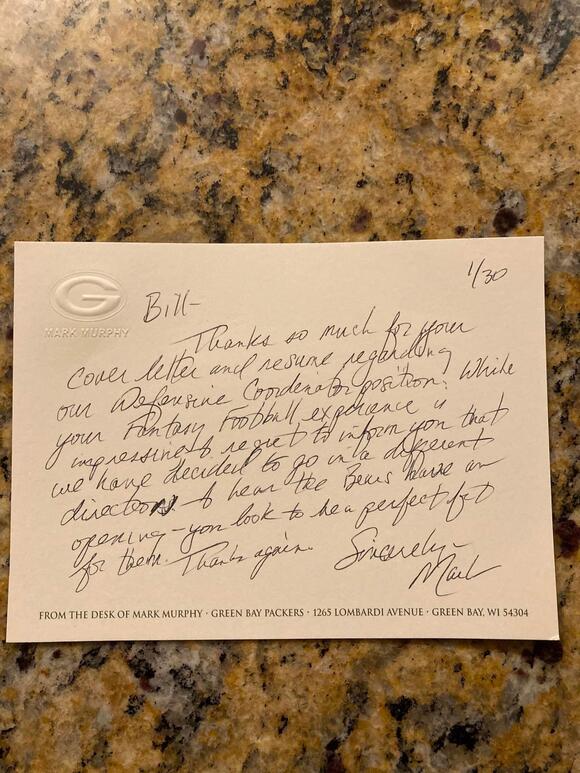 G
MARK MURPHY
1/30
Bill-
Thanks so much for your
cover letter and resume regarding
our Defensive Coordinator position. While
your Fantasy Football experience is
impressive I regret to inform you that
we have decided to go in a different
direction. I hear the Bears have an
opening - you look to be a perfect fit
for them. Thanks again.
Sincerely -
Mark
FROM THE DESK OF MARK MURPHY · GREEN BAY PACKERS · 1265 LOMBARDI AVENUE · GREEN BAY, WI 54304